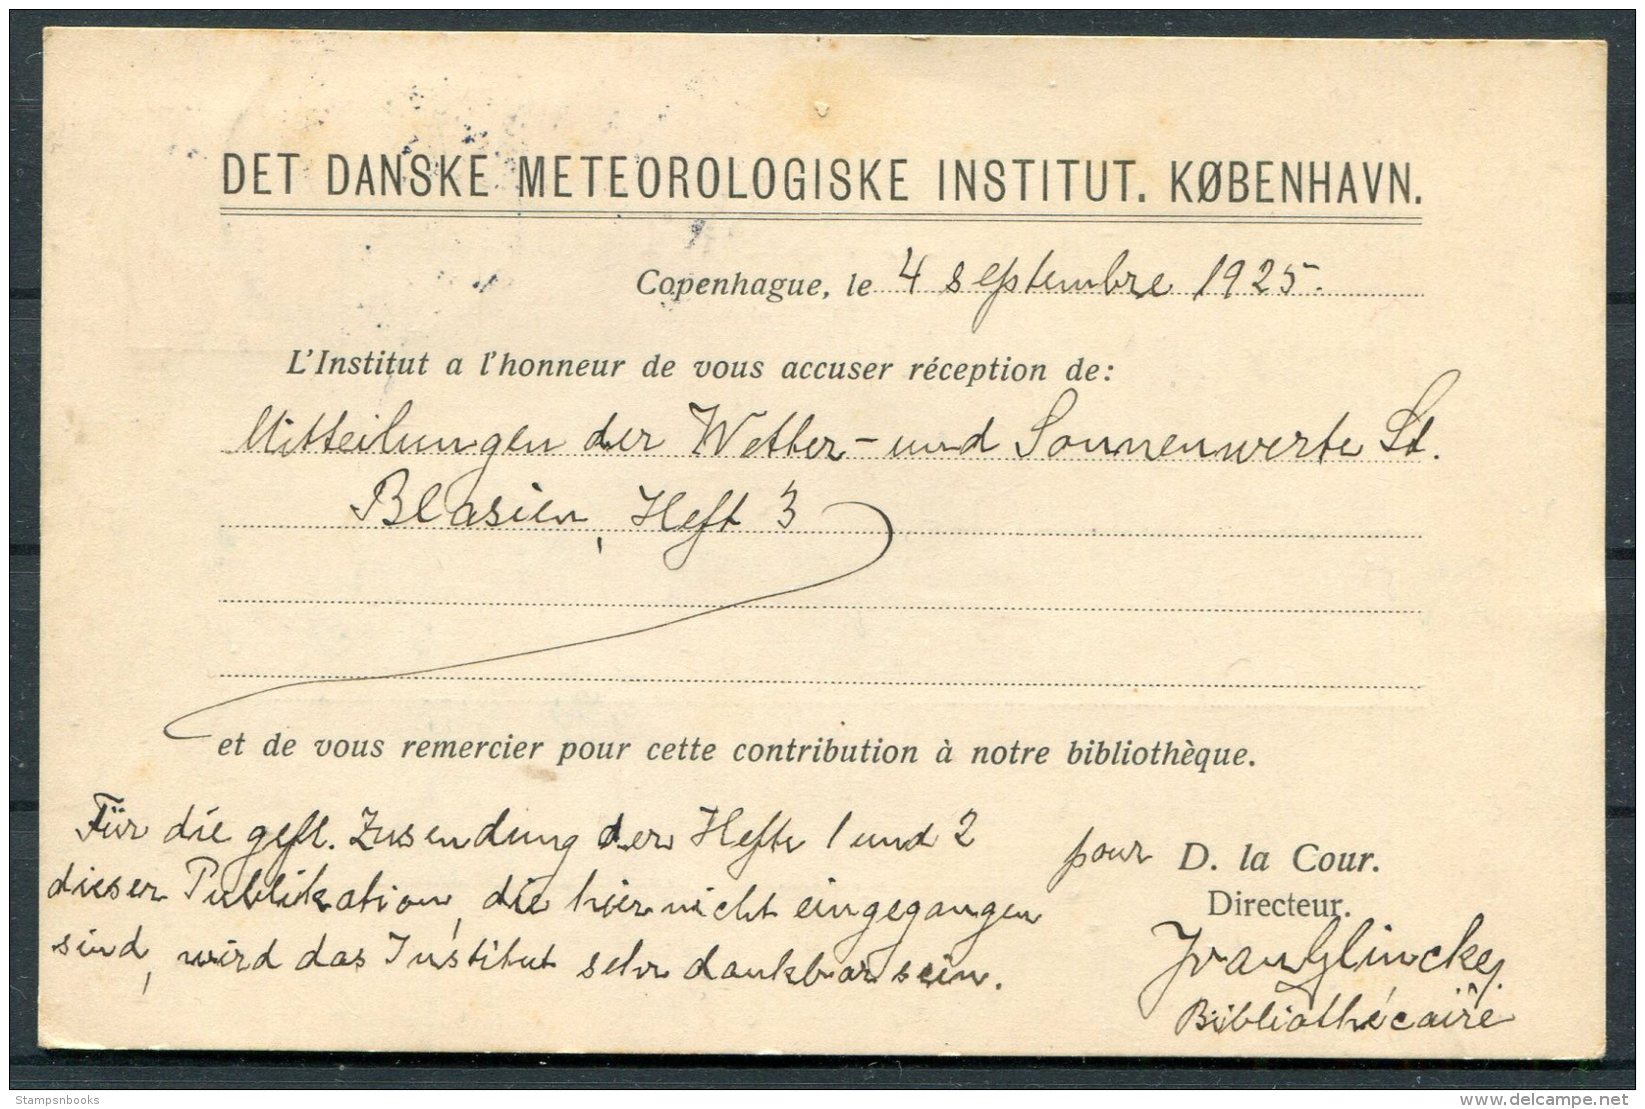 DET DANSKE METEOROLOGISKE INSTITUT. KØBENHAVN.
Copenhague, le 4 septembre 1925.
L'Institut a l'honneur de vous accuser réception de:
Mitteilungen der Wetter- und Sonnenwerte St.
Blasien, Heft 3
et de vous remercier pour cette contribution à notre bibliothèque.
Für die gefl. Zusendung der Hefte 1 und 2
dieser Publikation, die hier nicht eingegangen
sind, wird das Institut sehr dankbar sein.
pour D. la Cour.
Directeur.
Bibliothécaire
Stampsnbooks
www.delcampe.net